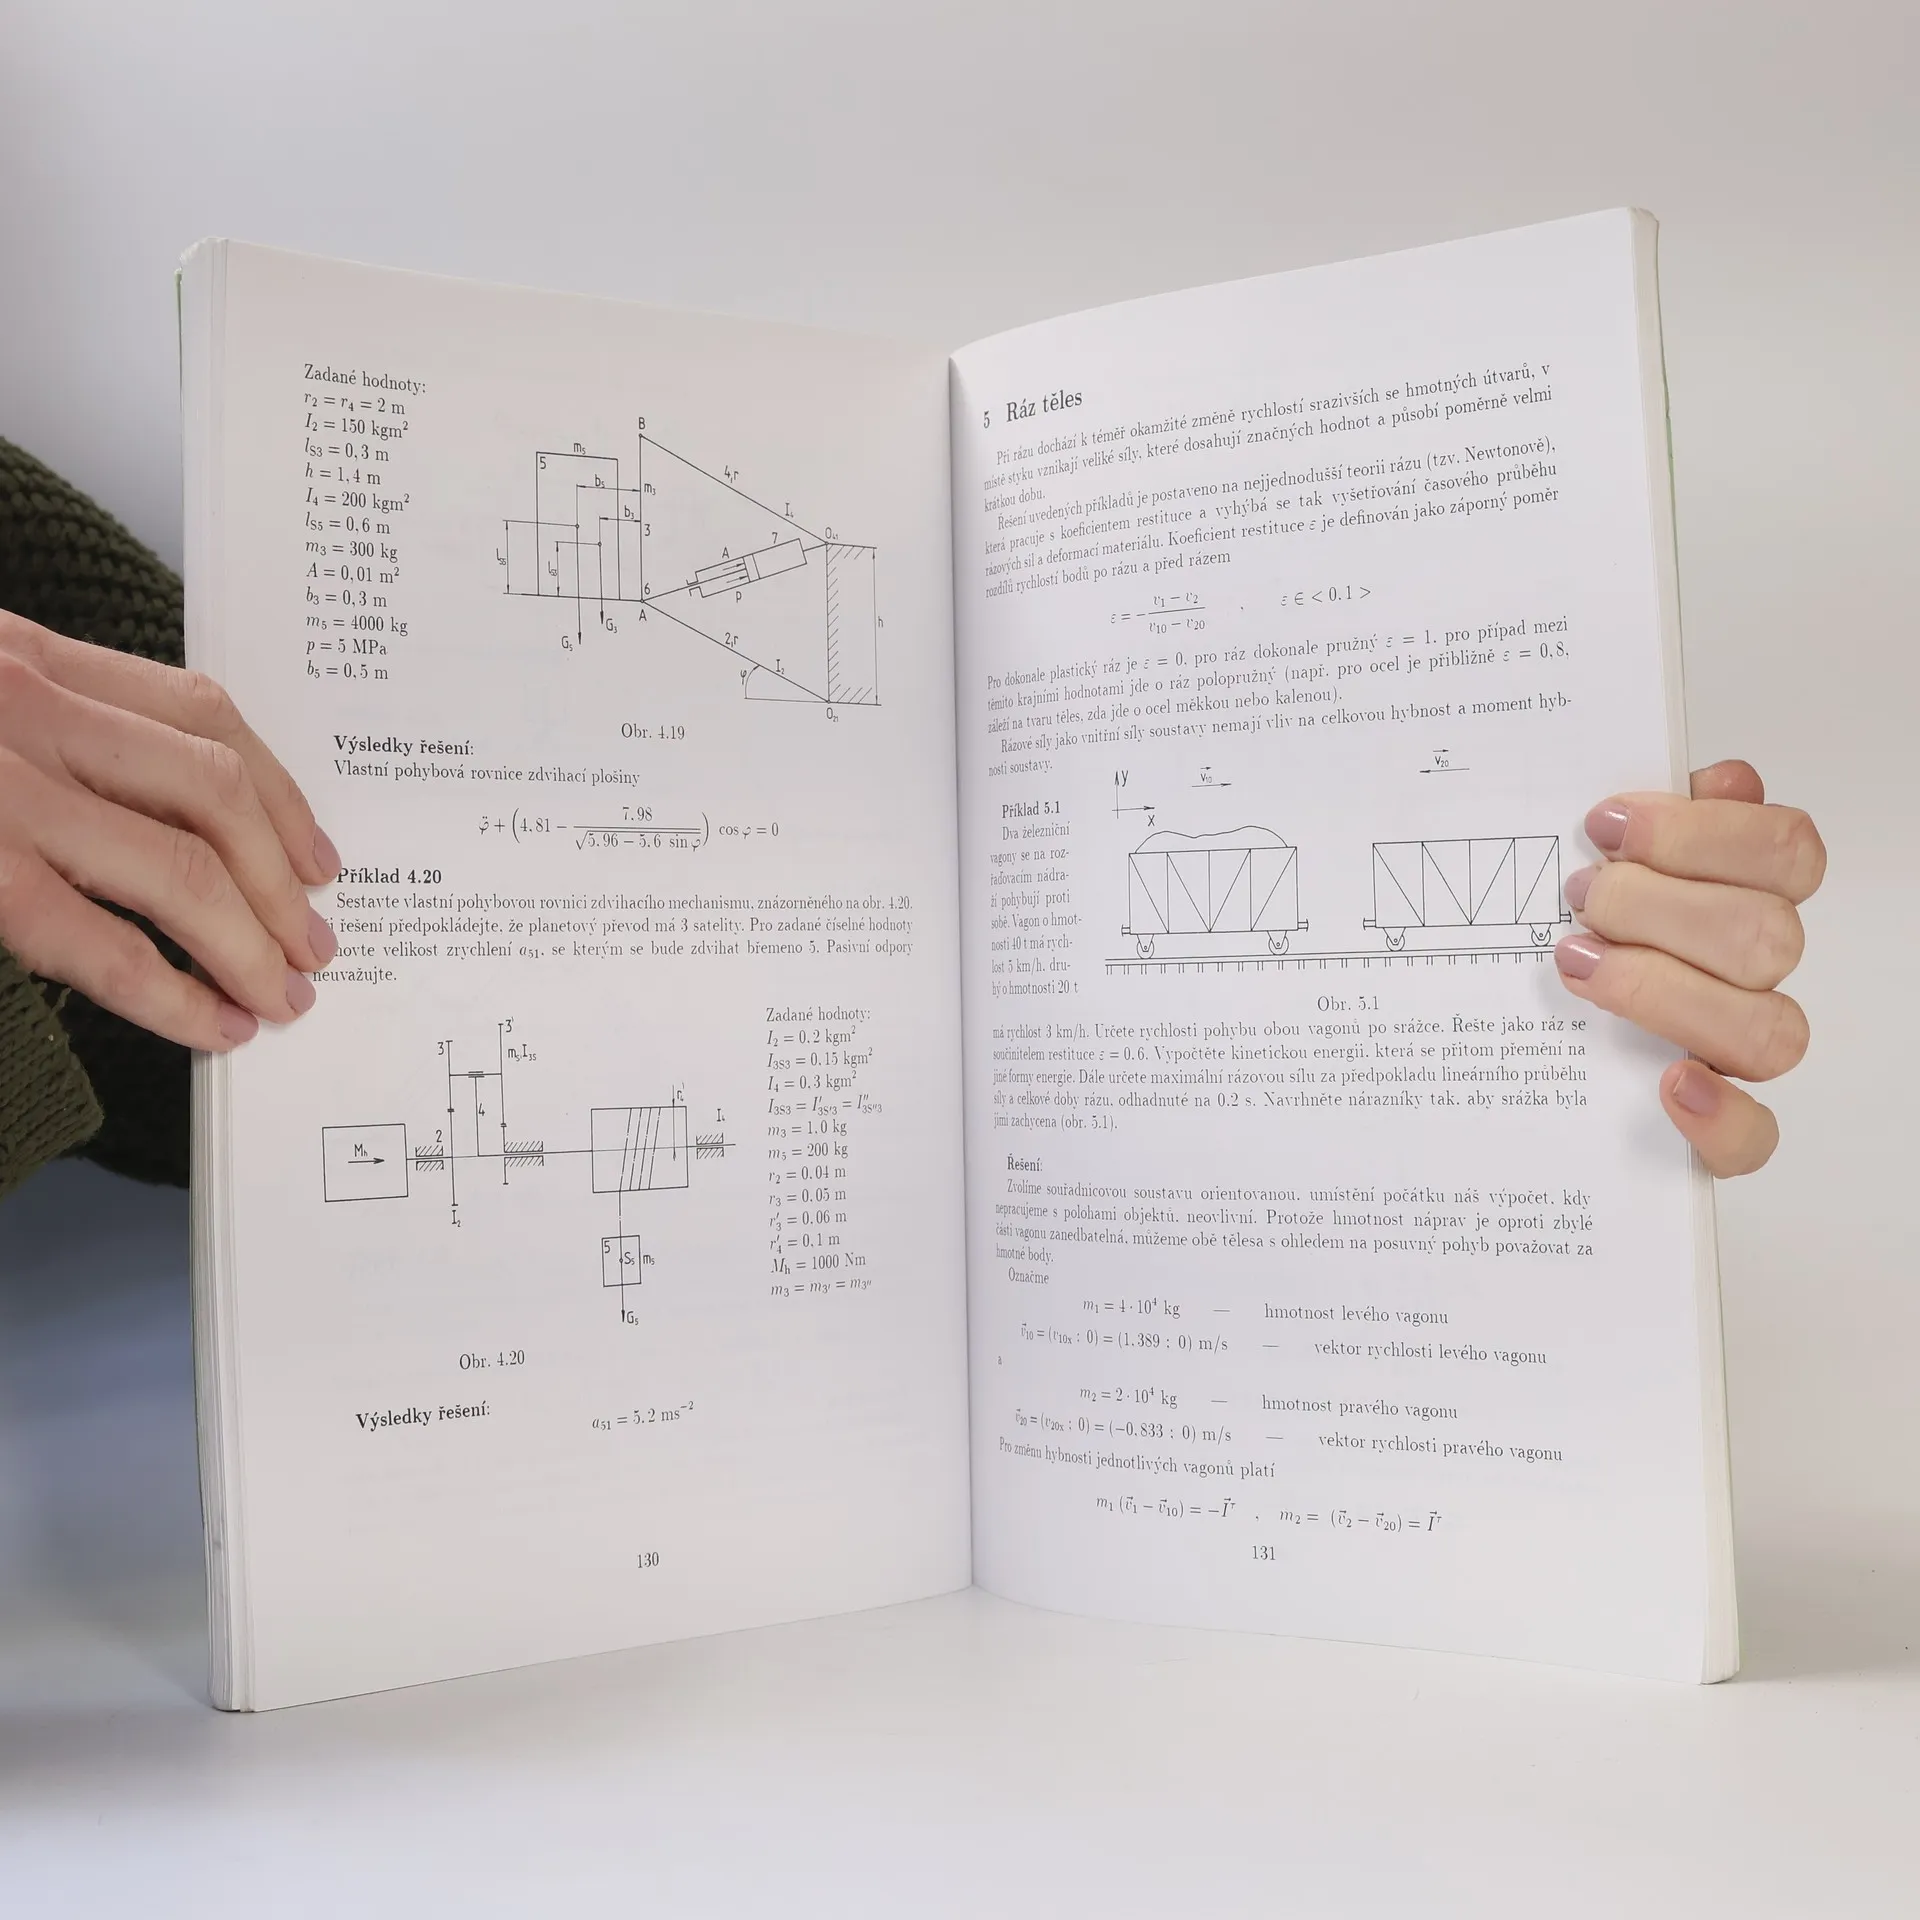 Zadané hodnoty:
r₂ = r₄ = 2 m
I₂ = 150 kgm²
l_S3 = 0,3 m
h = 1,4 m
I₄ = 200 kgm²
l_S5 = 0,6 m
m₃ = 300 kg
A = 0,01 m²
b₃ = 0,3 m
m₅ = 4000 kg
p = 5 MPa
b₅ = 0,5 m
B
m₅
5
4,r
b₅
m₃
I₄
b₃
3
7
O₄₁
A
l_S5
l_S3
6
p
A
h
G₃
G₅
2,r
I₂
φ
O₂₁
Obr. 4.19
Výsledky řešení:
Vlastní pohybová rovnice zdvihací plošiny
φ̈ + (4.81 − 7.98 / √(5.96 − 5.6 sin φ)) cos φ = 0
Příklad 4.20
Sestavte vlastní pohybovou rovnici zdvihacího mechanismu, znázorněného na obr. 4.20.
řešení předpokládejte, že planetový převod má 3 satelity. Pro zadané číselné hodnoty
velikost zrychlení a₅₁, se kterým se bude zdvihat břemeno 5. Pasivní odpory
neuvažujte.
3'
3
m₅,I₃S
4
2
M_h
I₂
r₄'
I₄
5
S₅
m₅
G₅
Zadané hodnoty:
I₂ = 0.2 kgm²
I₃S3 = 0.15 kgm²
I₄ = 0.3 kgm²
I₃S3 = I'₃S'3 = I''₃S''3
m₃ = 1.0 kg
m₅ = 200 kg
r₂ = 0.04 m
r₃ = 0.05 m
r'₃ = 0.06 m
r'₄ = 0,1 m
M_h = 1000 Nm
m₃ = m₃' = m₃''
Obr. 4.20
Výsledky řešení:
a₅₁ = 5.2 ms⁻²
130
5 Ráz těles
Při rázu dochází k téměř okamžité změně rychlostí srazivších se hmotných útvarů, v
místě styku vznikají veliké síly, které dosahují značných hodnot a působí poměrně velmi
krátkou dobu.
Řešení uvedených příkladů je postaveno na nejjednodušší teorii rázu (tzv. Newtonově),
která pracuje s koeficientem restituce a vyhýbá se tak vyšetřování časového průběhu
rázových sil a deformací materiálu. Koeficient restituce ε je definován jako záporný poměr
rozdílů rychlostí bodů po rázu a před rázem
ε = − (v₁ − v₂) / (v₁₀ − v₂₀) , ε ∈ < 0.1 >
Pro dokonale plastický ráz je ε = 0, pro ráz dokonale pružný ε = 1, pro případ mezi
těmito krajními hodnotami jde o ráz polopružný (např. pro ocel je přibližně ε = 0,8,
záleží na tvaru těles, zda jde o ocel měkkou nebo kalenou).
Rázové síly jako vnitřní síly soustavy nemají vliv na celkovou hybnost a moment hyb-
nosti soustavy.
y
x
v⃗₁₀
v⃗₂₀
Příklad 5.1
Dva železniční
vagony se na roz-
řaďovacím nádra-
ží pohybují proti
sobě. Vagon o hmot-
nosti 40 t má rych-
lost 5 km/h, dru-
hý o hmotnosti 20 t
Obr. 5.1
má rychlost 3 km/h. Určete rychlosti pohybu obou vagonů po srážce. Řešte jako ráz se
součinitelem restituce ε = 0.6. Vypočtěte kinetickou energii, která se přitom přemění na
jiné formy energie. Dále určete maximální rázovou sílu za předpokladu lineárního průběhu
síly a celkové doby rázu, odhadnuté na 0.2 s. Navrhněte nárazníky tak, aby srážka byla
jimi zachycena (obr. 5.1).
Řešení:
Zvolíme souřadnicovou soustavu orientovanou, umístění počátku náš výpočet, kdy
nepracujeme s polohami objektů, neovlivní. Protože hmotnost náprav je oproti zbylé
části vagonu zanedbatelná, můžeme obě tělesa s ohledem na posuvný pohyb považovat za
hmotné body.
Označme
m₁ = 4 · 10⁴ kg — hmotnost levého vagonu
v⃗₁₀ = (v₁₀ₓ : 0) = (1.389 : 0) m/s — vektor rychlosti levého vagonu
a
m₂ = 2 · 10⁴ kg — hmotnost pravého vagonu
v⃗₂₀ = (v₂₀ₓ : 0) = (−0.833 : 0) m/s — vektor rychlosti pravého vagonu
Pro změnu hybnosti jednotlivých vagonů platí
m₁ (v⃗₁ − v⃗₁₀) = −I⃗ʳ , m₂ = (v⃗₂ − v⃗₂₀) = I⃗ʳ
131